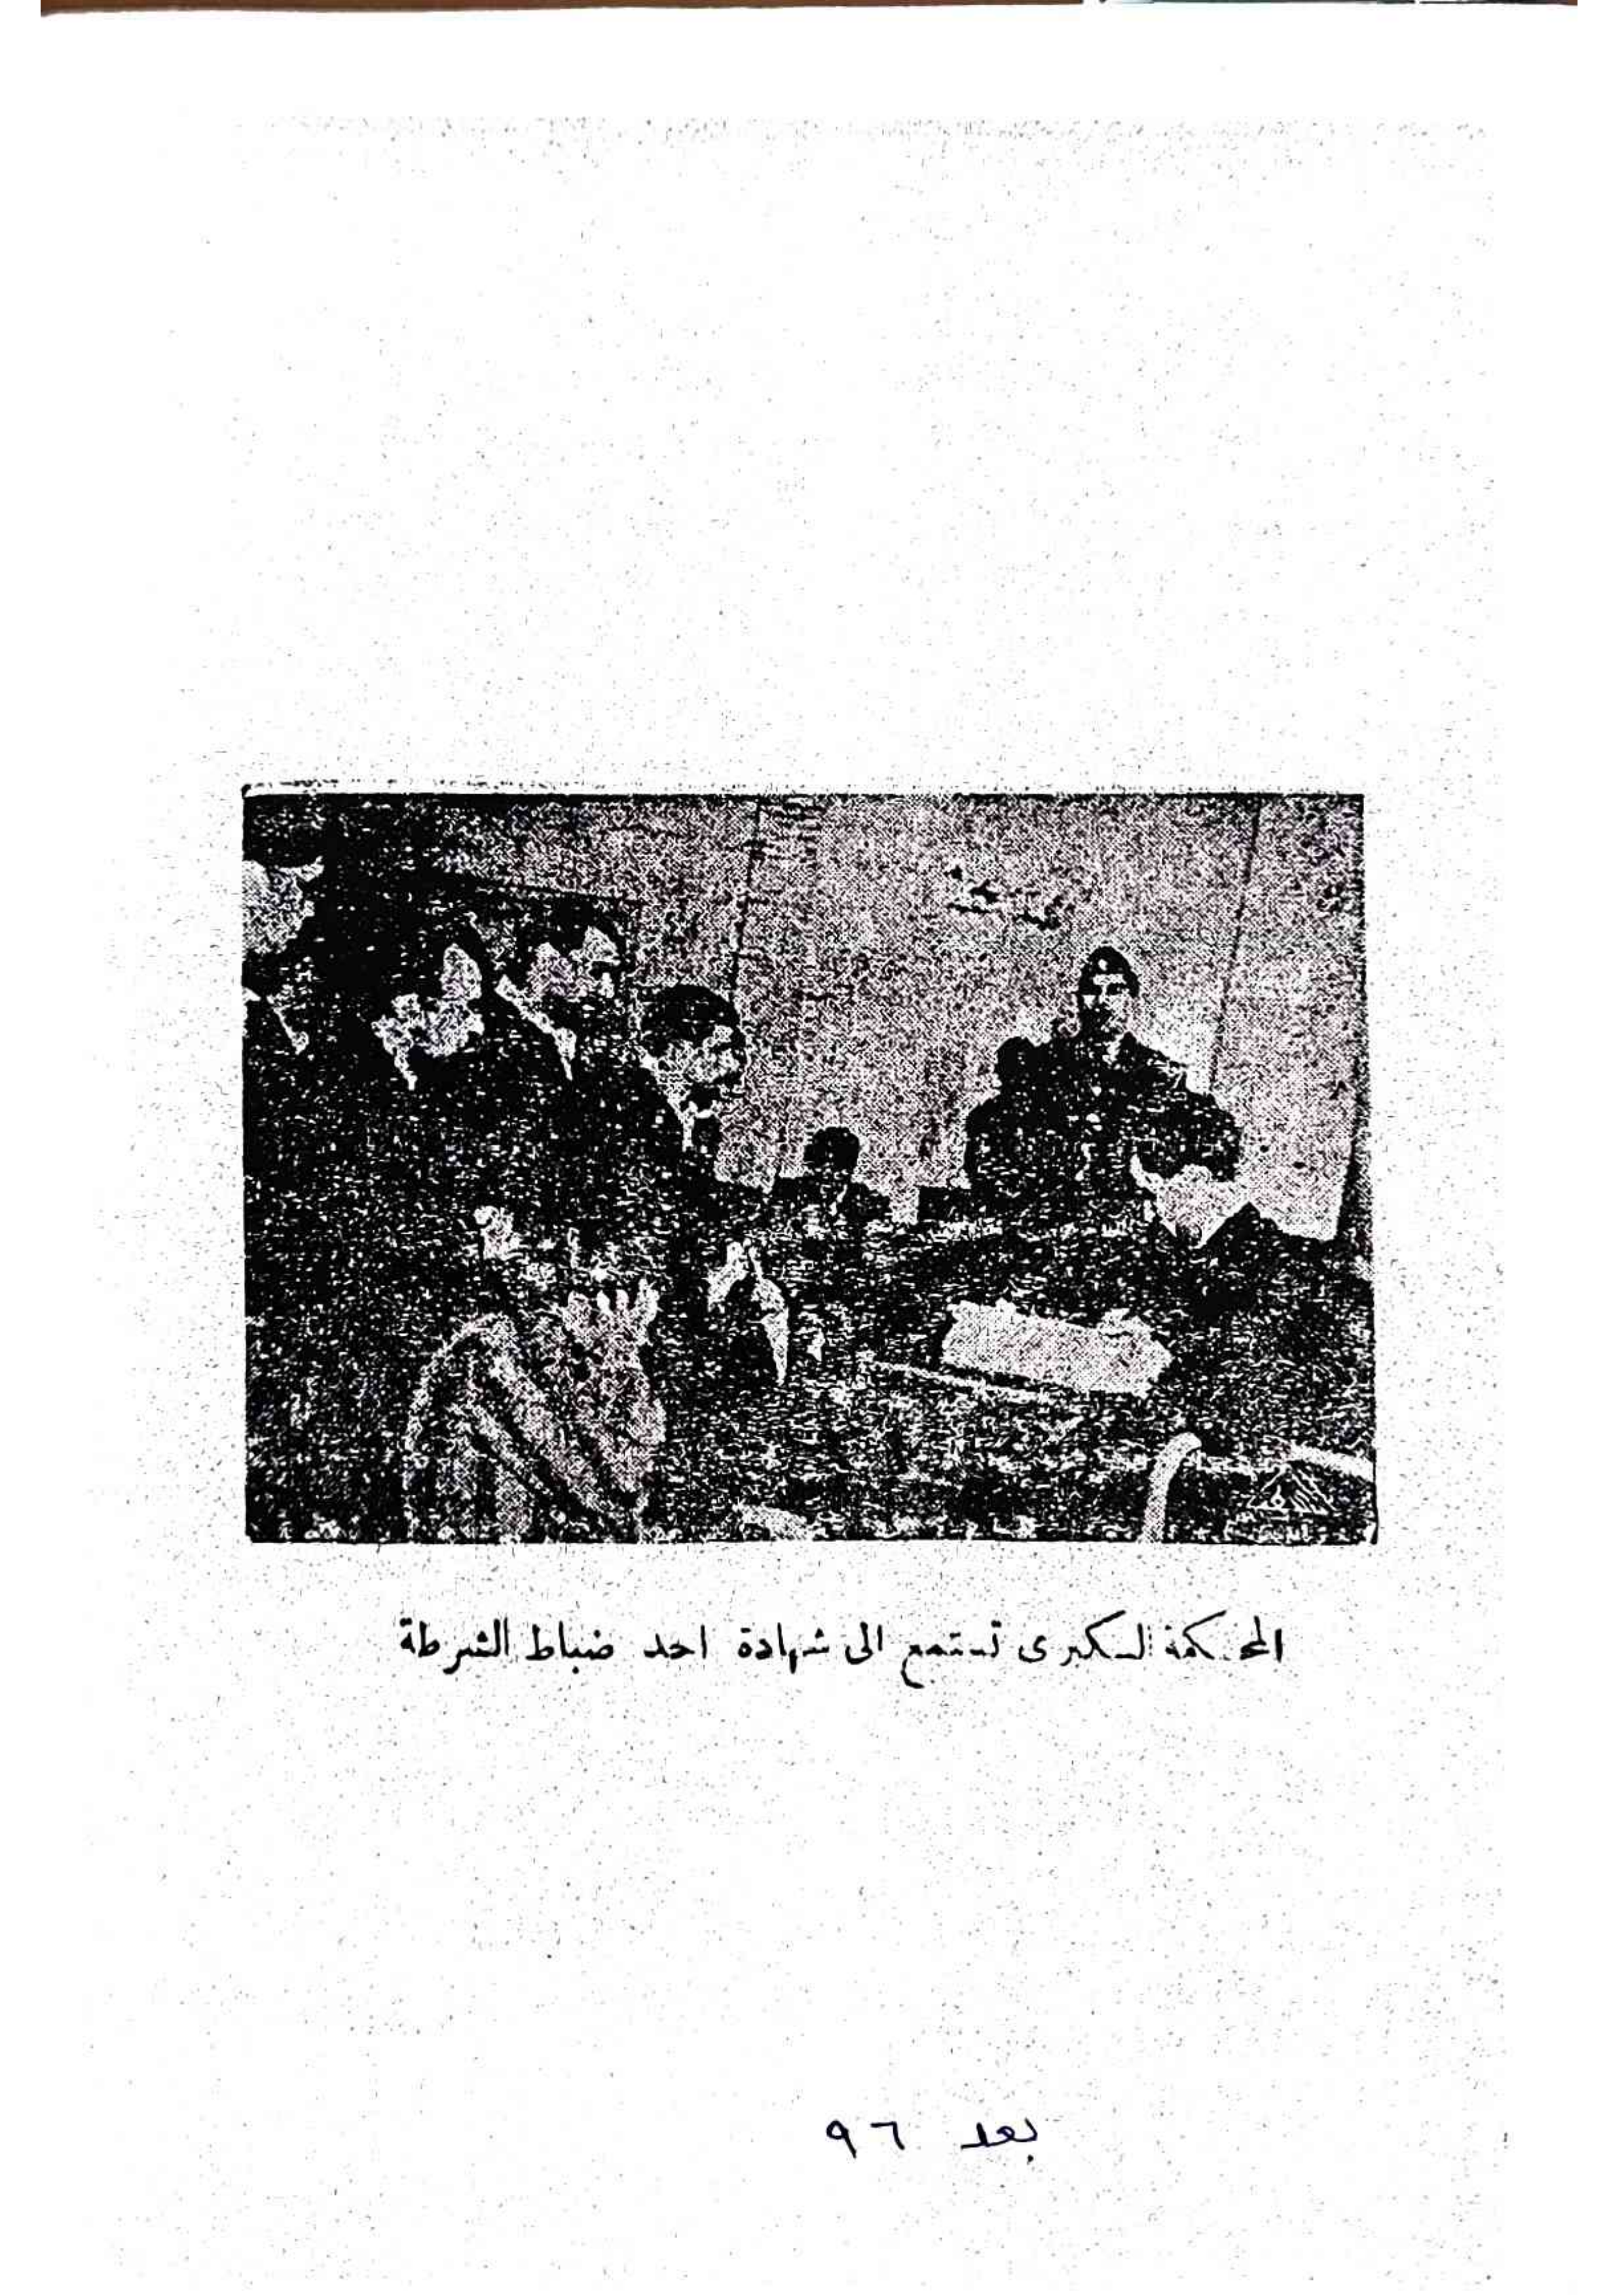 المحكمة الكبرى تستمع الى شهادة احد ضباط الشرطة
بعد ٩٦